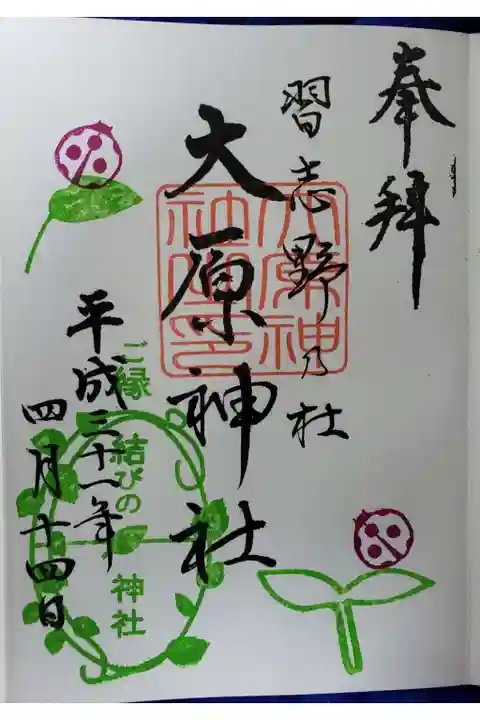 奉拝
習志野乃杜
大原神社
大原神社之印
ご縁結びの神社
平成三十一年
四月十四日